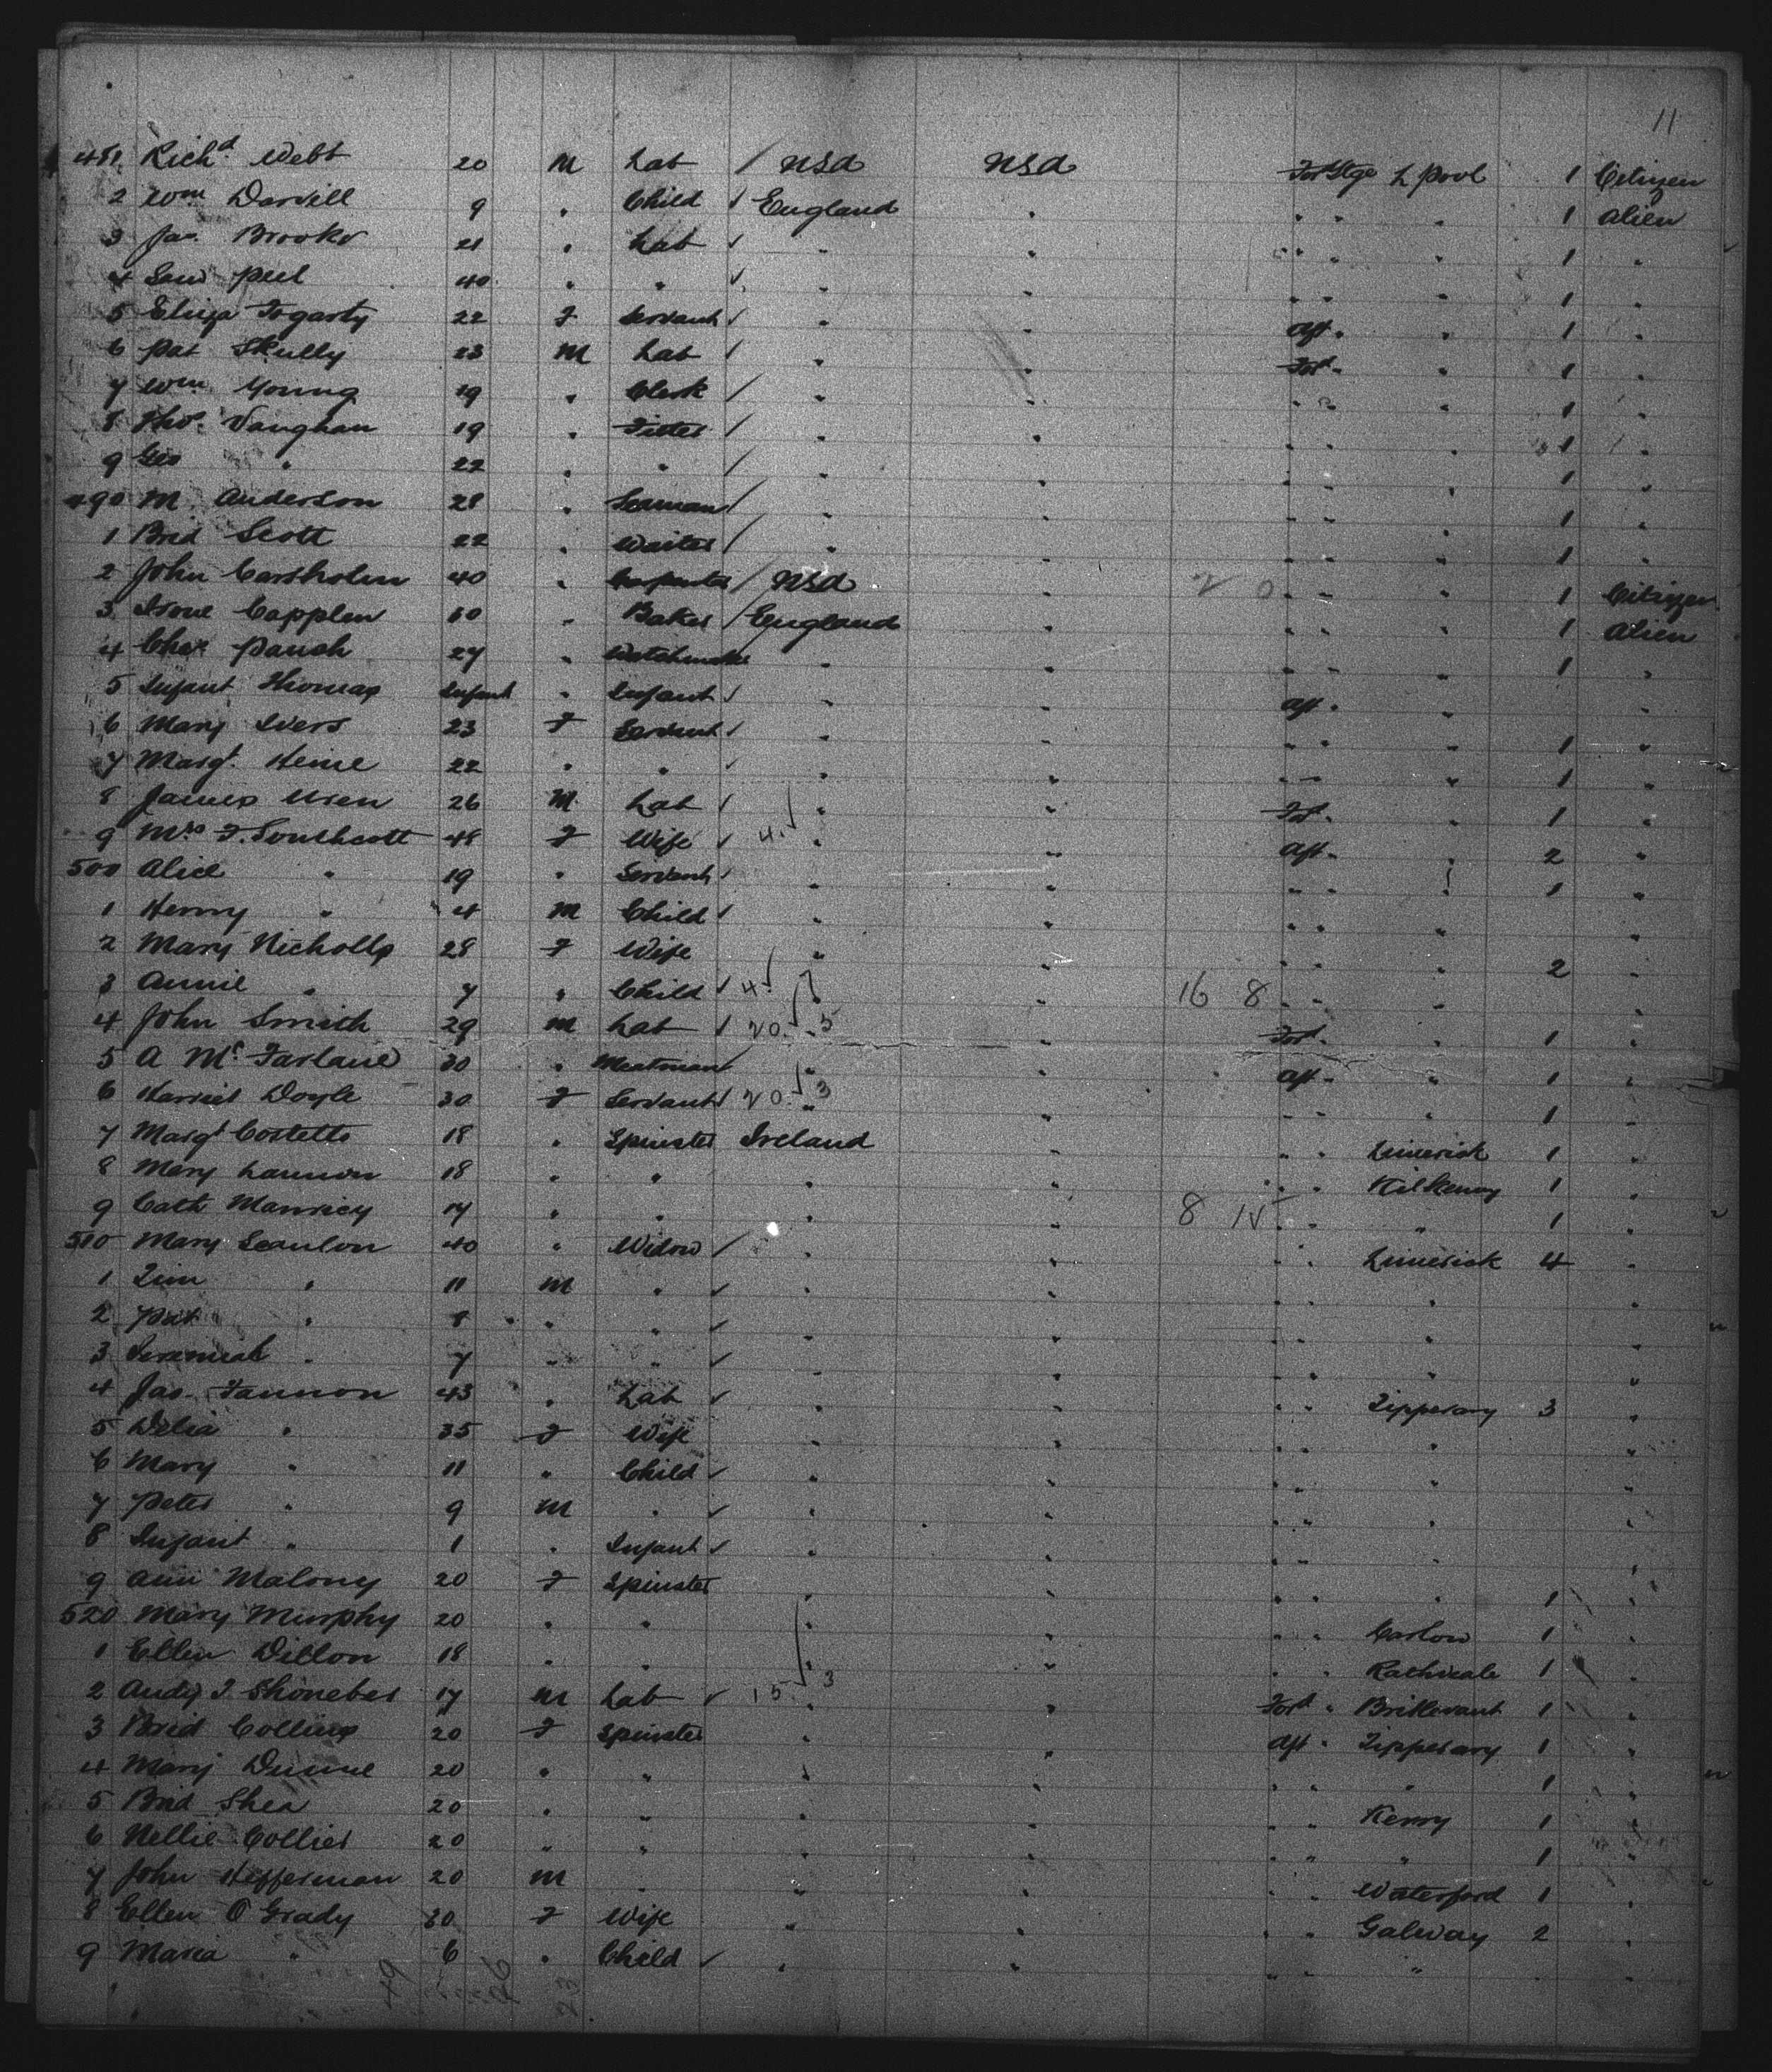 11
481 Rich.d Webb 20 M Lab / USA USA Ford Stge L Pool 1 Citizen
2 Wm Darvill 9 " Child ✓ England " " " " 1 Alien
3 Jas. Brooks 21 " Lab ✓ " " " " " 1 "
4 Saml Peel 40 " " ✓ " " " " " 1 "
5 Eliza Fogarty 22 F Servant ✓ " " Aft " " 1 "
6 Pat Skully 23 M Lab ✓ " " Ford " " 1 "
7 Wm Young 19 " Clerk / " " " " " 1 "
8 Tho.s Vaughan 19 " Fitter / " " " " " 1 "
9 Geo " 22 " " / " " " " " 1 "
490 M. Anderson 28 " Seaman / " " " " " 1 "
1 Brid Scott 22 " Waiter / " " " " " 1 "
2 John Carsholm 40 " Carpenter / USA " 2 0 " " " 1 Citizen
3 Capplen 50 " Baker / England " " " " 1 Alien
4 Chas 27 " Watchmaker " " " " " 1 "
5 Infant Thomas Infant " Infant ✓ " " Aft " " "
6 Mary Ivers 23 F Servant ✓ " " " " " 1 "
7 Margt. Heine 22 " " ✓ " " " " " 1 "
8 James Uren 26 M Lab ✓ " " Ford " " 1 "
9 Mrs F. Southcott 48 F Wife ✓ 4 ✓ " " Aft " " 2 "
500 Alice " 19 " Servant ✓ " " " " " 1 "
1 Henry " 4 M Child ✓ " " " " " "
2 Mary Nicholls 28 F Wife " " " " " 2 "
3 Annie " 7 " Child ✓ 4 ✓ " " 16 8 " " " "
4 John Smith 29 M Lab ✓ 20 ✓ 5 " Ford " " 1 "
5 A McFarlane 30 " Meatman ✓ " " Aft " " 1 "
6 Harriet Doyle 30 F Servant ✓ 20 ✓ 3 " " " " " 1 "
7 Margt Costello 18 " Spinster Ireland " " " Limerick 1 "
8 Mary Lannon 18 " " " " " " Kilkenny 1 "
9 Cath 17 " " " " 8 15 " " " 1 "
510 Mary Scanlon 40 " Widow ✓ " " " " Limerick 4 "
1 Tim " 11 M " ✓ " " " " " "
2 Pat " 8 " " ✓ " " " " " "
3 Jeremiah " 7 " " ✓ " " " " " "
4 Jas Fannon 43 " Lab ✓ " " " " Tipperary 3 "
5 Delia " 35 F Wife " " " " " "
6 Mary " 11 " Child ✓ " " " " " "
7 Peter " 9 M " ✓ " " " " " "
8 Infant " 1 " Infant ✓ " " " " " "
9 Ann Malony 20 F Spinster " " " " " 1 "
520 Mary Murphy 20 " " " " " " Carlow 1 "
1 Ellen Dillon 18 " " " " " " Rathkeale 1 "
2 17 M Lab ✓ 15 ✓ 3 " Ford " 1 "
3 Brid Collins 20 F Spinster " " Aft " Tipperary 1 "
4 Mary Dunne 20 " " " " " " " 1 "
5 Brid Shea 20 " " " " " " Kerry 1 "
6 Nellie Collier 20 " " " " " " " 1 "
7 John Hefferman 20 M " " " " " Waterford 1 "
8 Ellen O Grady 30 F Wife " " " " Galway 2 "
9 Maria " 6 " Child ✓ " " " " " "